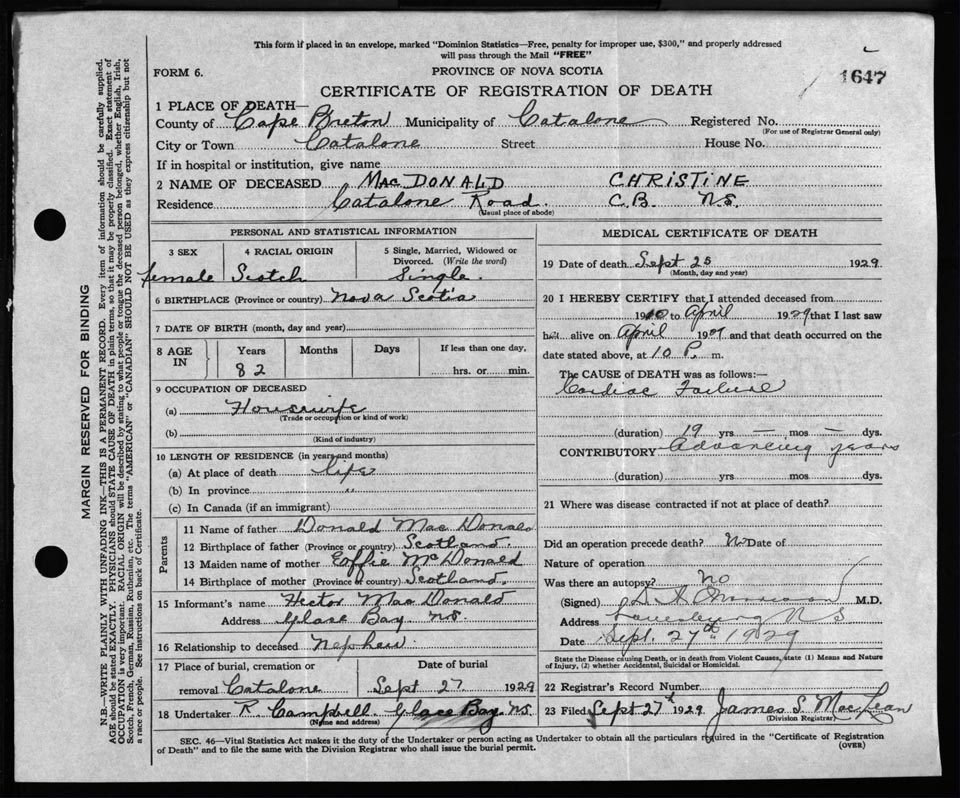 This form if placed in an envelope, marked "Dominion Statistics—Free, penalty for improper use, $300," and properly addressed
will pass through the Mail "FREE"
FORM 6.
PROVINCE OF NOVA SCOTIA
1647
CERTIFICATE OF REGISTRATION OF DEATH
1 PLACE OF DEATH—
County of Cape Breton Municipality of Catalone Registered No.
(For use of Registrar General only)
City or Town Catalone Street House No.
If in hospital or institution, give name
2 NAME OF DECEASED MACDONALD CHRISTINE
Residence Catalone Road. C.B. N.S.
(Usual place of abode)
PERSONAL AND STATISTICAL INFORMATION
3 SEX 4 RACIAL ORIGIN 5 Single, Married, Widowed or
Divorced. (Write the word)
female Scotch Single.
6 BIRTHPLACE (Province or country) Nova Scotia
7 DATE OF BIRTH (month, day and year)
8 AGE IN Years Months Days If less than one day,
82 hrs. or min.
9 OCCUPATION OF DECEASED
(a) Housewife
(Trade or occupation or kind of work)
(b)
(Kind of industry)
10 LENGTH OF RESIDENCE (in years and months)
(a) At place of death life
(b) In province "
(c) In Canada (if an immigrant)
Parents
11 Name of father Donald MacDonald
12 Birthplace of father (Province or country) Scotland.
13 Maiden name of mother Effie McDonald
14 Birthplace of mother (Province or country) Scotland.
15 Informant's name Hector MacDonald
Address Glace Bay N.S.
16 Relationship to deceased Nephew
17 Place of burial, cremation or Date of burial
removal Catalone Sept 27 1929
18 Undertaker R. Campbell. Glace Bay N.S.
(Name and address)
MEDICAL CERTIFICATE OF DEATH
19 Date of death Sept 25 1929
(Month, day and year)
20 I HEREBY CERTIFY that I attended deceased from
1910 to April 1929 that I last saw
h alive on April 1929 and that death occurred on the
date stated above, at 10 P. m.
The CAUSE OF DEATH was as follows:—
Cardiac Failure
(duration) 19 yrs — mos — dys.
CONTRIBUTORY Advancing years
(duration) yrs mos dys.
21 Where was disease contracted if not at place of death?
Did an operation precede death? No Date of
Nature of operation
Was there an autopsy? No
(Signed) M.D.
Address Louisburg N S
Date Sept. 27th 1929
State the Disease causing Death, or in death from Violent Causes, state (1) Means and Nature
of Injury, (2) whether Accidental, Suicidal or Homicidal.
22 Registrar's Record Number
23 Filed Sept 27th 1929 James S. MacLean
(Division Registrar)
SEC. 46—Vital Statistics Act makes it the duty of the Undertaker or person acting as Undertaker to obtain all the particulars required in the "Certificate of Registration
of Death" and to file the same with the Division Registrar who shall issue the burial permit.
(OVER)
MARGIN RESERVED FOR BINDING
N.B.—WRITE PLAINLY WITH UNFADING INK—THIS IS A PERMANENT RECORD. Every item of information should be carefully supplied.
AGE should be stated EXACTLY. PHYSICIANS should STATE CAUSE OF DEATH in plain terms, so that it may be properly classified. Exact statement of
OCCUPATION is very important. RACIAL ORIGIN will be described by stating to what people or tongue the deceased person belonged, whether English, Irish,
Scotch, French, German, Russian, Ruthenian, etc. The terms "AMERICAN" or "CANADIAN" SHOULD NOT BE USED as they express citizenship but not
a race or people. See instructions on back of Certificate.